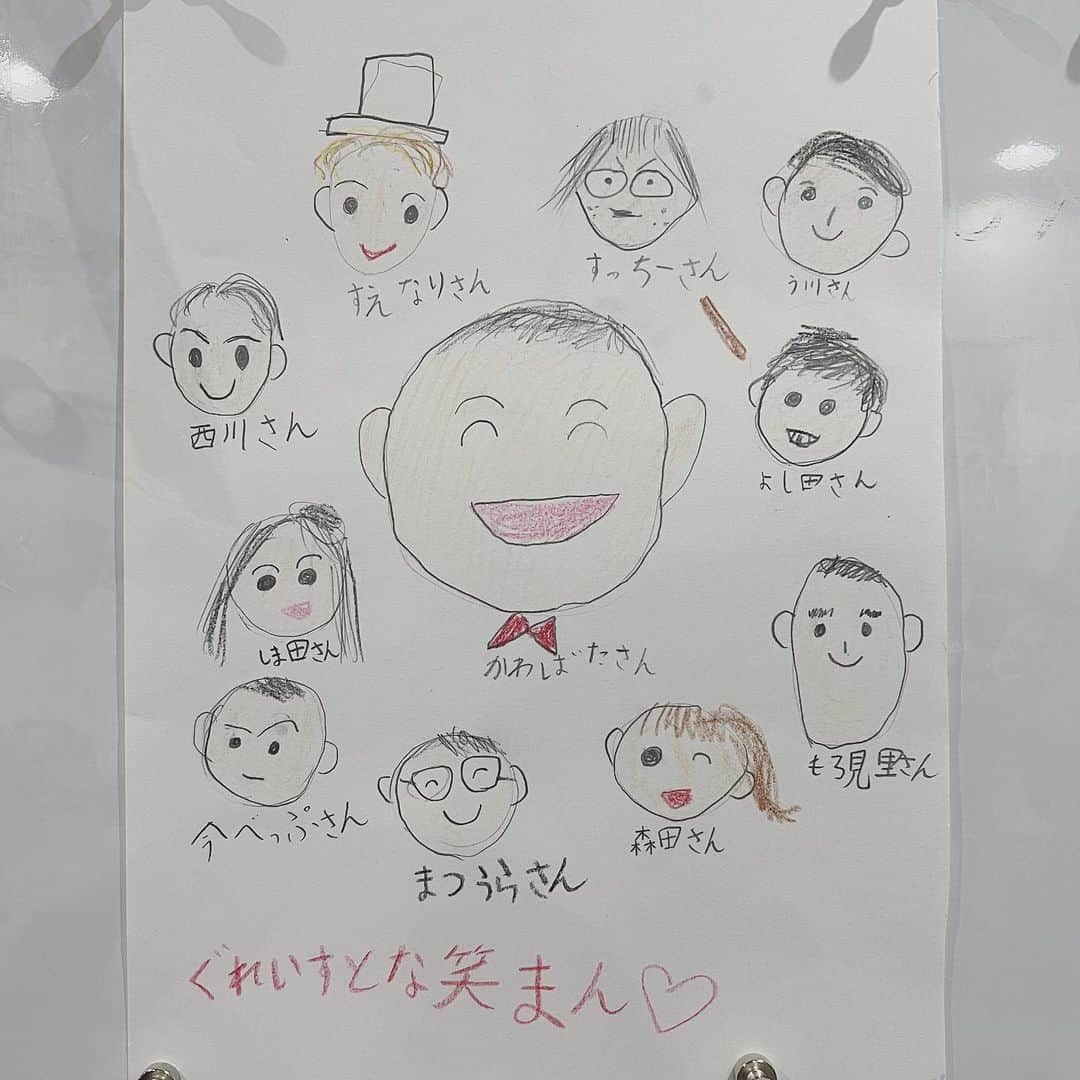 すえなりさん
すっちーさん
う川さん
西川さん
よし田さん
しま田さん
かわばたさん
もろ見里さん
今べっぷさん
まつうらさん
森田さん
ぐれいすとな笑まん♡